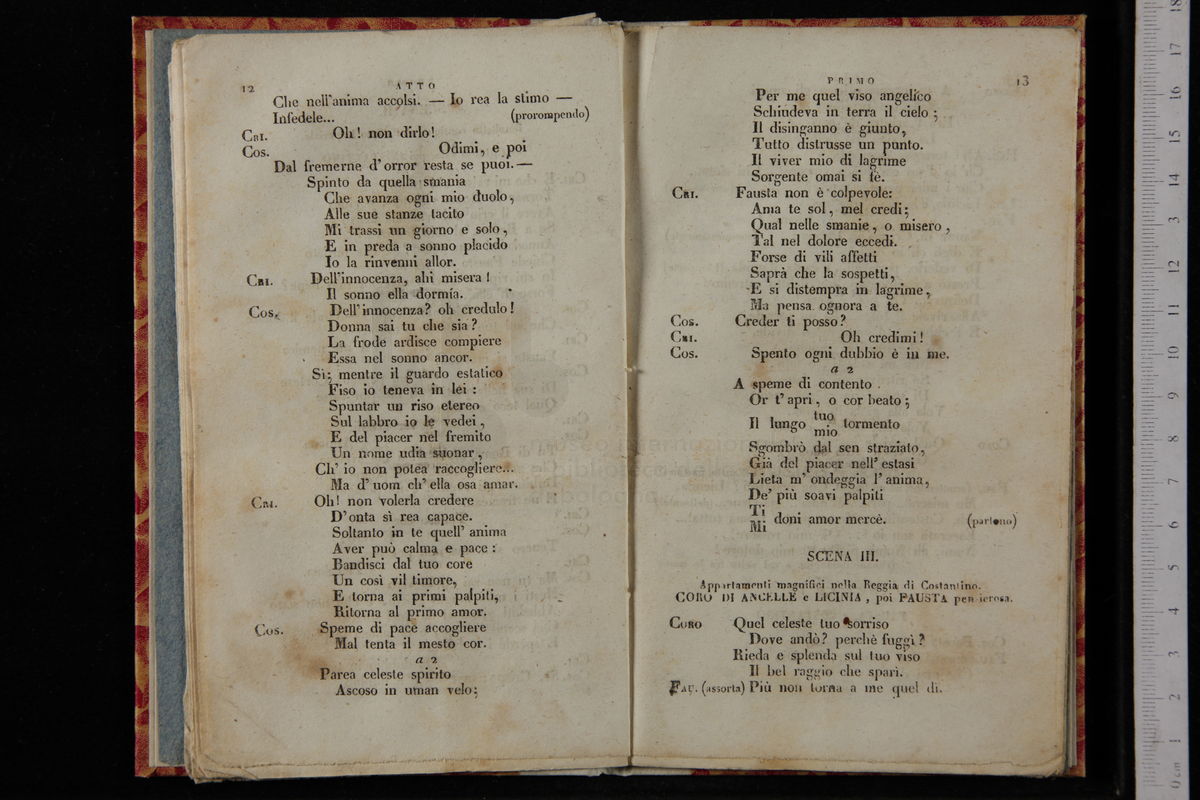 12
ATTO
Che nell'anima accolsi. — Io rea la stimo —
Infedele... (prorompendo)
CRI. Oh! non dirlo!
COS. Odimi, e poi
Dal fremerne d'orror resta se puoi. —
Spinto da quella smania
Che avanza ogni mio duolo,
Alle sue stanze tacito
Mi trassi un giorno e solo,
E in preda a sonno placido
Io la rinvenni allor.
CRI. Dell'innocenza, ahi misera!
Il sonno ella dormía.
COS. Dell'innocenza? oh credulo!
Donna sai tu che sia?
La frode ardisce compiere
Essa nel sonno ancor.
Sì; mentre il guardo estatico
Fiso io teneva in lei:
Spuntar un riso etereo
Sul labbro io le vedei,
E del piacer nel fremito
Un nome udia suonar,
Ch' io non potea raccogliere...
Ma d'uom ch' ella osa amar.
CRI. Oh! non volerla credere
D'onta sì rea capace.
Soltanto in te quell' anima
Aver può calma e pace:
Bandisci dal tuo core
Un così vil timore,
E torna ai primi palpiti,
Ritorna al primo amor.
COS. Speme di pace accogliere
Mal tenta il mesto cor.
a 2
Parea celeste spirito
Ascoso in uman velo;
PRIMO
13
Per me quel viso angelico
Schiudeva in terra il cielo;
Il disinganno è giunto,
Tutto distrusse un punto.
Il viver mio di lagrime
Sorgente omai si fè.
CRI. Fausta non è colpevole:
Ama te sol, mel credi;
Qual nelle smanie, o misero,
Tal nel dolore eccedi.
Forse di vili affetti
Saprà che la sospetti,
E si distempra in lagrime,
Ma pensa ognora a te.
COS. Creder ti posso?
CRI. Oh credimi!
COS. Spento ogni dubbio è in me.
a 2
A speme di contento
Or t'apri, o cor beato;
tuo
Il lungo tormento
mio
Sgombrò dal sen straziato,
Già del piacer nell' estasi
Lieta m' ondeggia l' anima,
De' più soavi palpiti
Ti
doni amor mercè. (partono)
Mi
SCENA III.
Appartamenti magnifici nella Reggia di Costantino.
CORO DI ANCELLE e LICINIA, poi FAUSTA pensierosa.
CORO Quel celeste tuo sorriso
Dove andò? perchè fuggì?
Rieda e splenda sul tuo viso
Il bel raggio che sparì.
FAU. (assorta) Più non torna a me quel dì.
18
17
16
15
14
13
12
11
10
9
8
7
6
5
4
3
2
1
0 cm